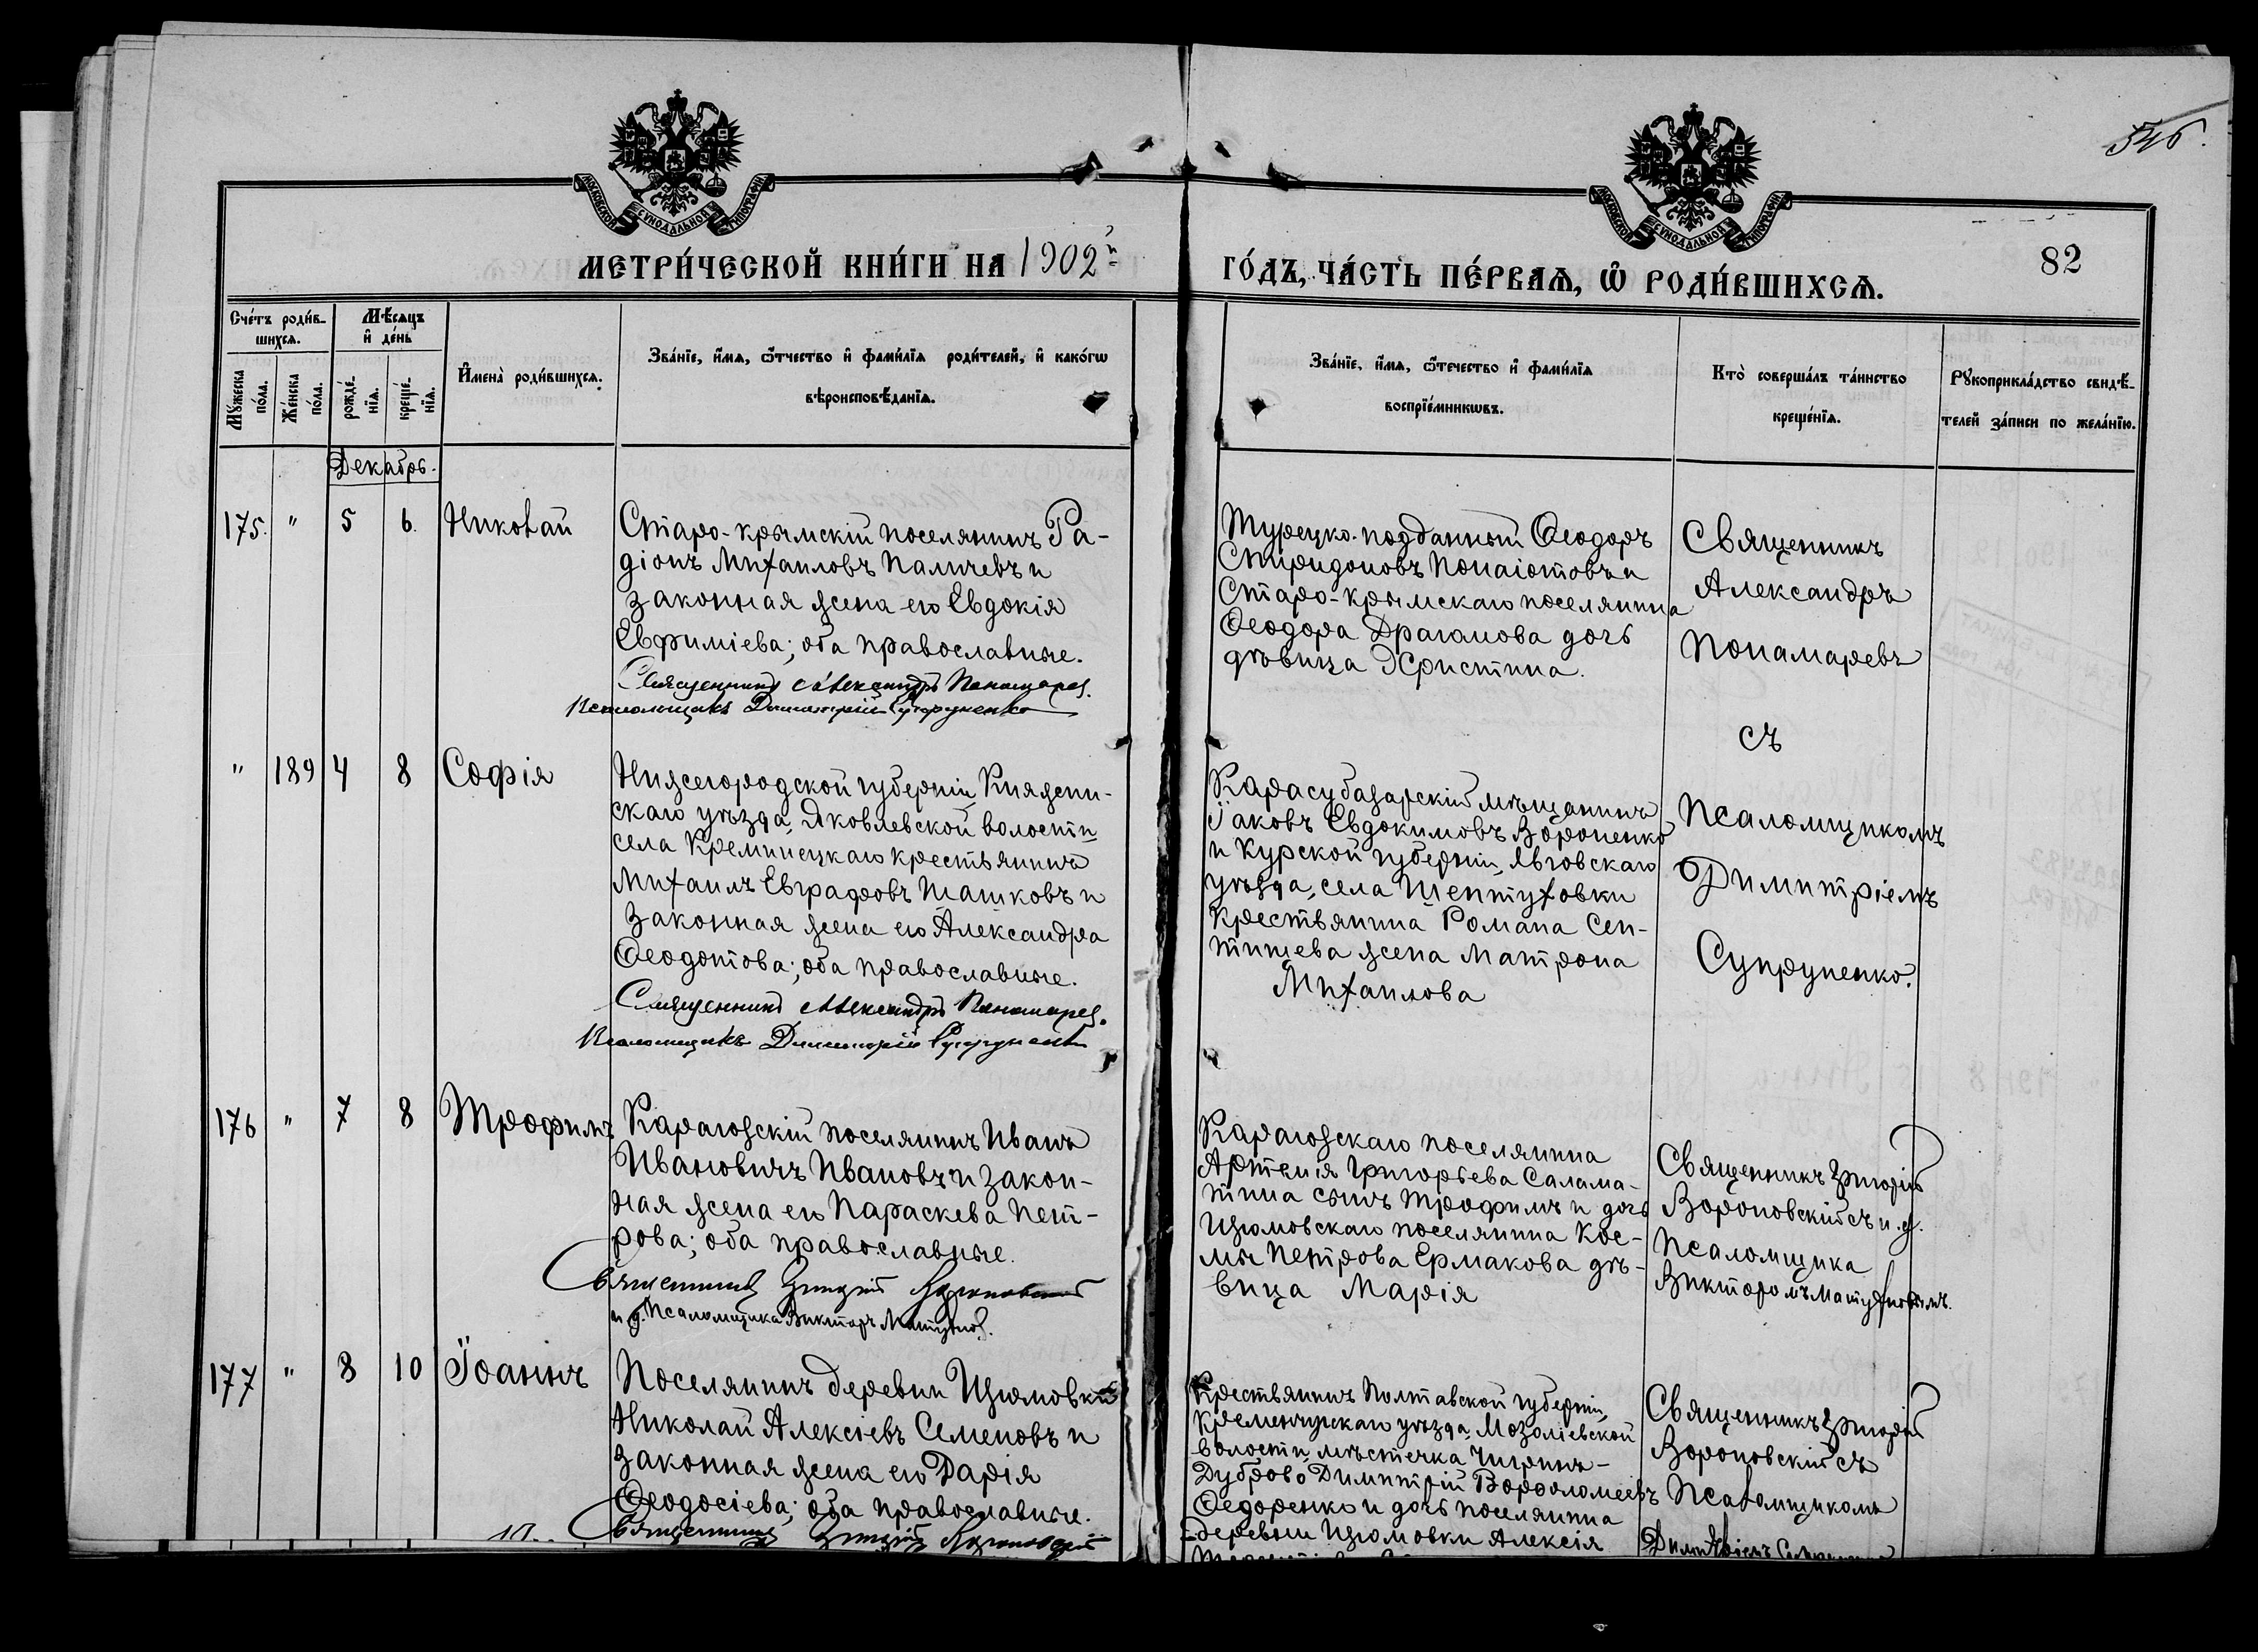 546.
МОСКОВСКОЙ СѴНОДАЛЬНОЙ ТИПОГРАФІИ
МОСКОВСКОЙ СѴНОДАЛЬНОЙ ТИПОГРАФІИ
МЕТРИ́ЧЕСКОЙ КНИ́ГИ НА 1902й
ГО́ДЪ, ЧА́СТЬ ПЕ́РВАѦ, Ѡ҆ РОДИ́ВШИХСѦ.
82
Сче́тъ роди́в-
шихсѧ.
Мѣ́сѧцъ
и҆ де́нь
Мꙋ́жеска
по́ла.
Же́нска
по́ла.
рожде́-
нїѧ.
креще́-
нїѧ.
И҆мена̀ роди́вшихсѧ.
Зва́нїе, и҆́мѧ, ѻ҆́тчество и҆ фами́лїѧ роди́телей, и҆ како́гѡ
вѣроисповѣ́данїѧ.
Зва́нїе, и҆́мѧ, ѻ҆́течество и҆ фами́лїѧ
воспрїе́мникѡвъ.
Кто̀ соверша́лъ та́инство
креще́нїѧ.
Рꙋкоприкла́дство свидѣ́-
телей за́писи по жела́нїю.
Декабрь.
175. " 5 6. Николай
Старо-крымскій поселянинъ Ра-
діонъ Михаиловъ Паличевъ и
законная жена его Евдокія
Евфиміева; оба православные.
Священникъ Александръ Понамарев.
Псаломщикъ Димитрій Супруненко
Турецко-подданный Ѳеодоръ
Спиридоновъ Попаіотовъ и
Старо-крымскаго поселянина
Ѳеодора Драганова дочь
дѣвица Христина.
Священникъ
Александръ
Понамаревъ
съ
Псаломщикомъ
Димитріемъ
Супруненко.
" 189 4 8 Софія
Нижегородской губерніи, Княгини-
скаго уѣзда, Яковлевской волости
села Креминецкаго крестьянинъ
Михаилъ Евграфовъ Ташковъ и
законная жена его Александра
Ѳеодотова; оба православные.
Священникъ Александръ Понамарев.
Псаломщикъ Димитрій Супруненко
Карасубазарскій мѣщанинъ
Іаковъ Евдокимовъ Вороненко
и Курской губерніи, Льговскаго
уѣзда, села Шептуховки
крестьянина Романа Сен-
тищева жена Матрона
Михаилова
176 " 7 8 Трофимъ
Карагозскій поселянинъ Иванъ
Ивановичъ Ивановъ и закон-
ная жена его Параскева Пет-
рова; оба православные.
Священникъ Григорій Вороновскій
и. д. Псаломщика Викторъ
Карагозскаго поселянина
Артемія Григорьева Салама-
тина сынъ Трофимъ и дочь
Изюмовскаго поселянина Кос-
мы Петрова Ермакова дѣ-
вица Марія
Священникъ Григорій
Вороновскій съ и. д.
Псаломщика
Викторомъ
177 " 8 10 Іоаннъ
Поселянинъ деревни Изюмовки
Николай Алексіевъ Семеновъ и
законная жена его Дарія
Ѳеодосіева; оба православные.
Священникъ Григорій Вороновскій
Крестьянинъ Полтавской губерніи,
Кременчугскаго уѣзда, Мозоліевской
волости, мѣстечка Чигринъ-
Дуброво Димитрій Варѳоломеевъ
Ѳедоренко и дочь поселянина
деревни Изюмовки Алексія
Священникъ Григорій
Вороновскій съ
Псаломщикомъ
Димитріемъ